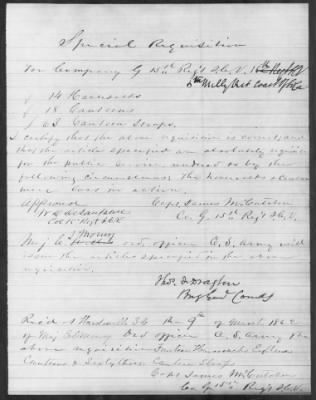 Special Requisition
For Company G 15th Reg't S.C.V.
5th Mility Dist
14 Haversacks
18 Canteens
63 Canteen Straps
I certify that the above requisition is correct and
that the articles specified are absolutely requisite
for the public service rendered so by the
following circumstances The haversacks & Canteens
were lost in action.
Approved Capt James McCutchen
Co. G 15th Reg't S.C.V.
Maj ord officer C. S. Army will
issue the articles specified in the above
requisition.
Thos. F. Drayton
Brig Genl Comdg
Rec'd at Hardeeville S.C. the 9th of March 1862
of Maj ord officer C. S. Army the
above requisition Fourteen Haversacks Eighteen
Canteens & Sixty three Canteen Straps
Capt James McCutchen
Co. G 15th Reg't S.C.V.